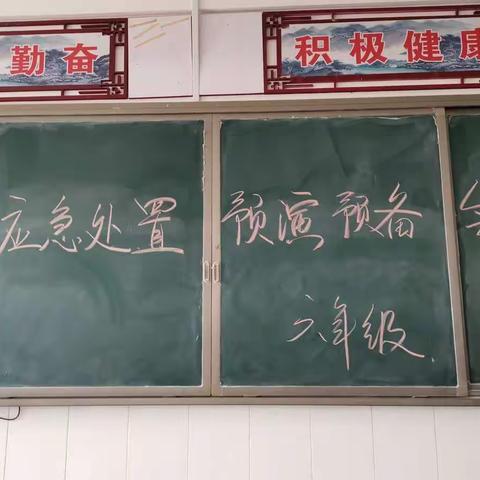 勤奋
积极健康
应急处置 预演预备
六年级